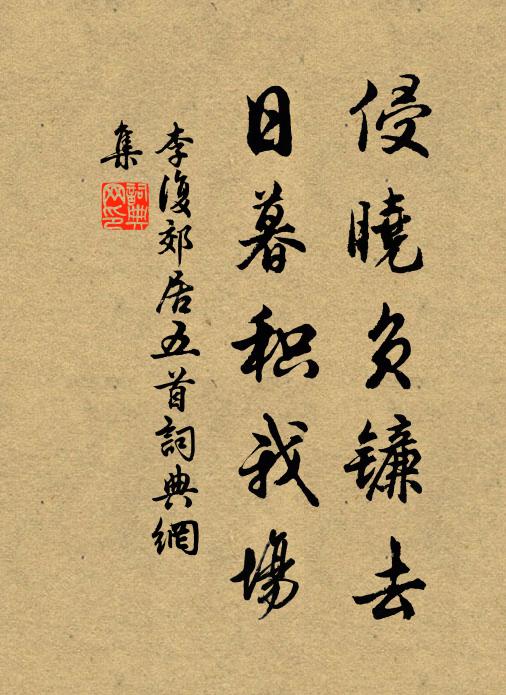 侵曉負鐮去
日暮积我場
李復郊居五首詞典網
集
詞典網印